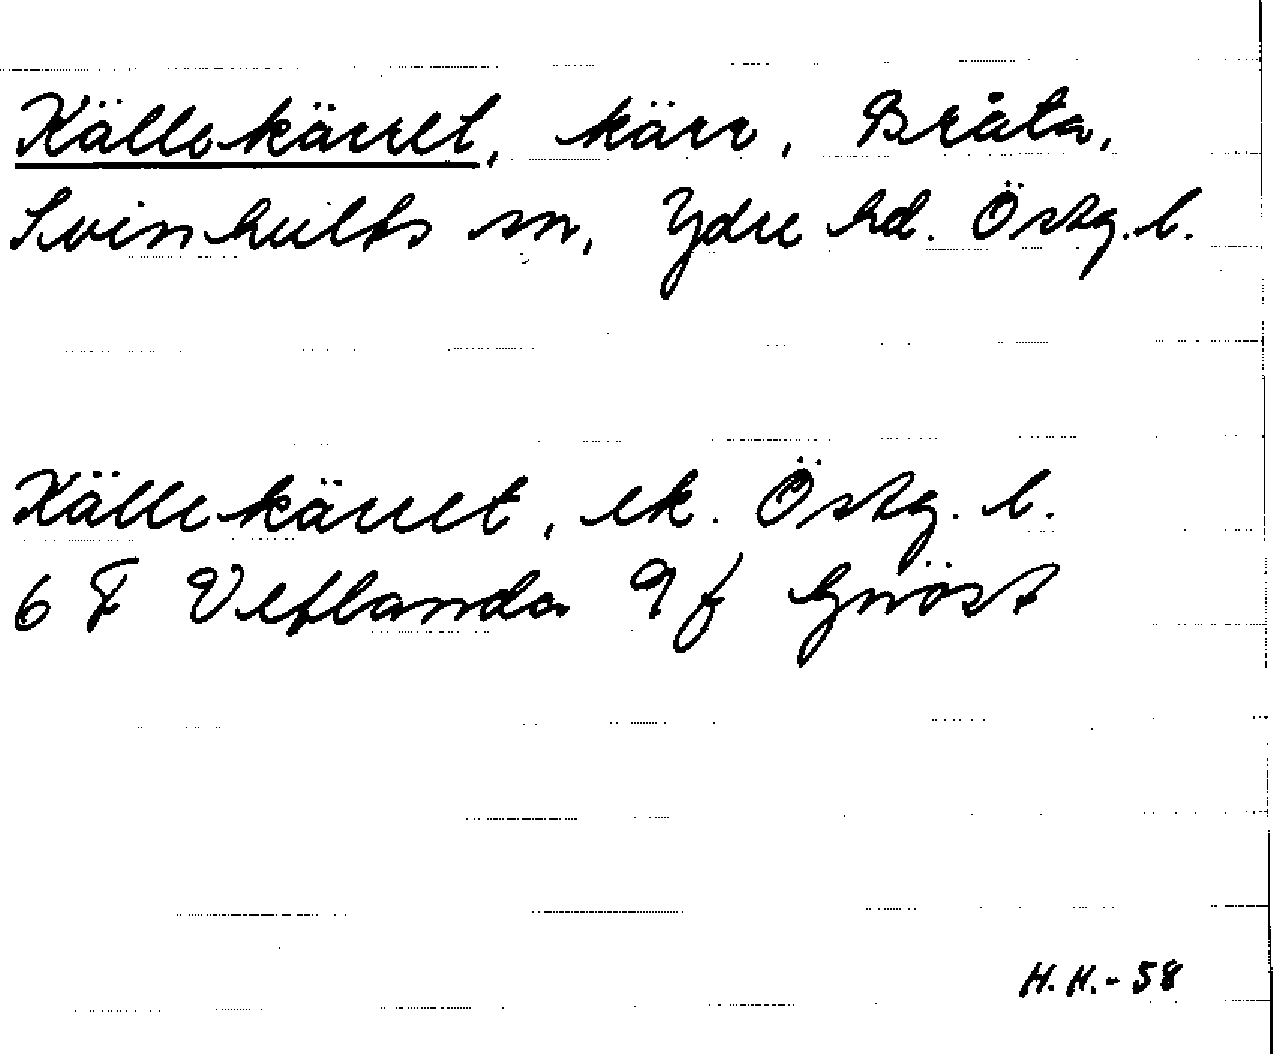 Källekärret, kärr, Bråta,
Svinhults sn, Ydre hd. Östg. l.
Källekärret, ek. Östg. l.
6 F Vetlanda 9 f Gnöst
H.H.-58